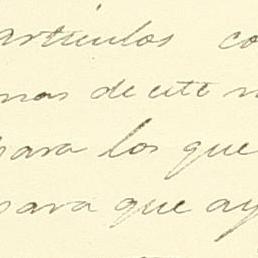 articulos co
mas de este
para los que
para que ay